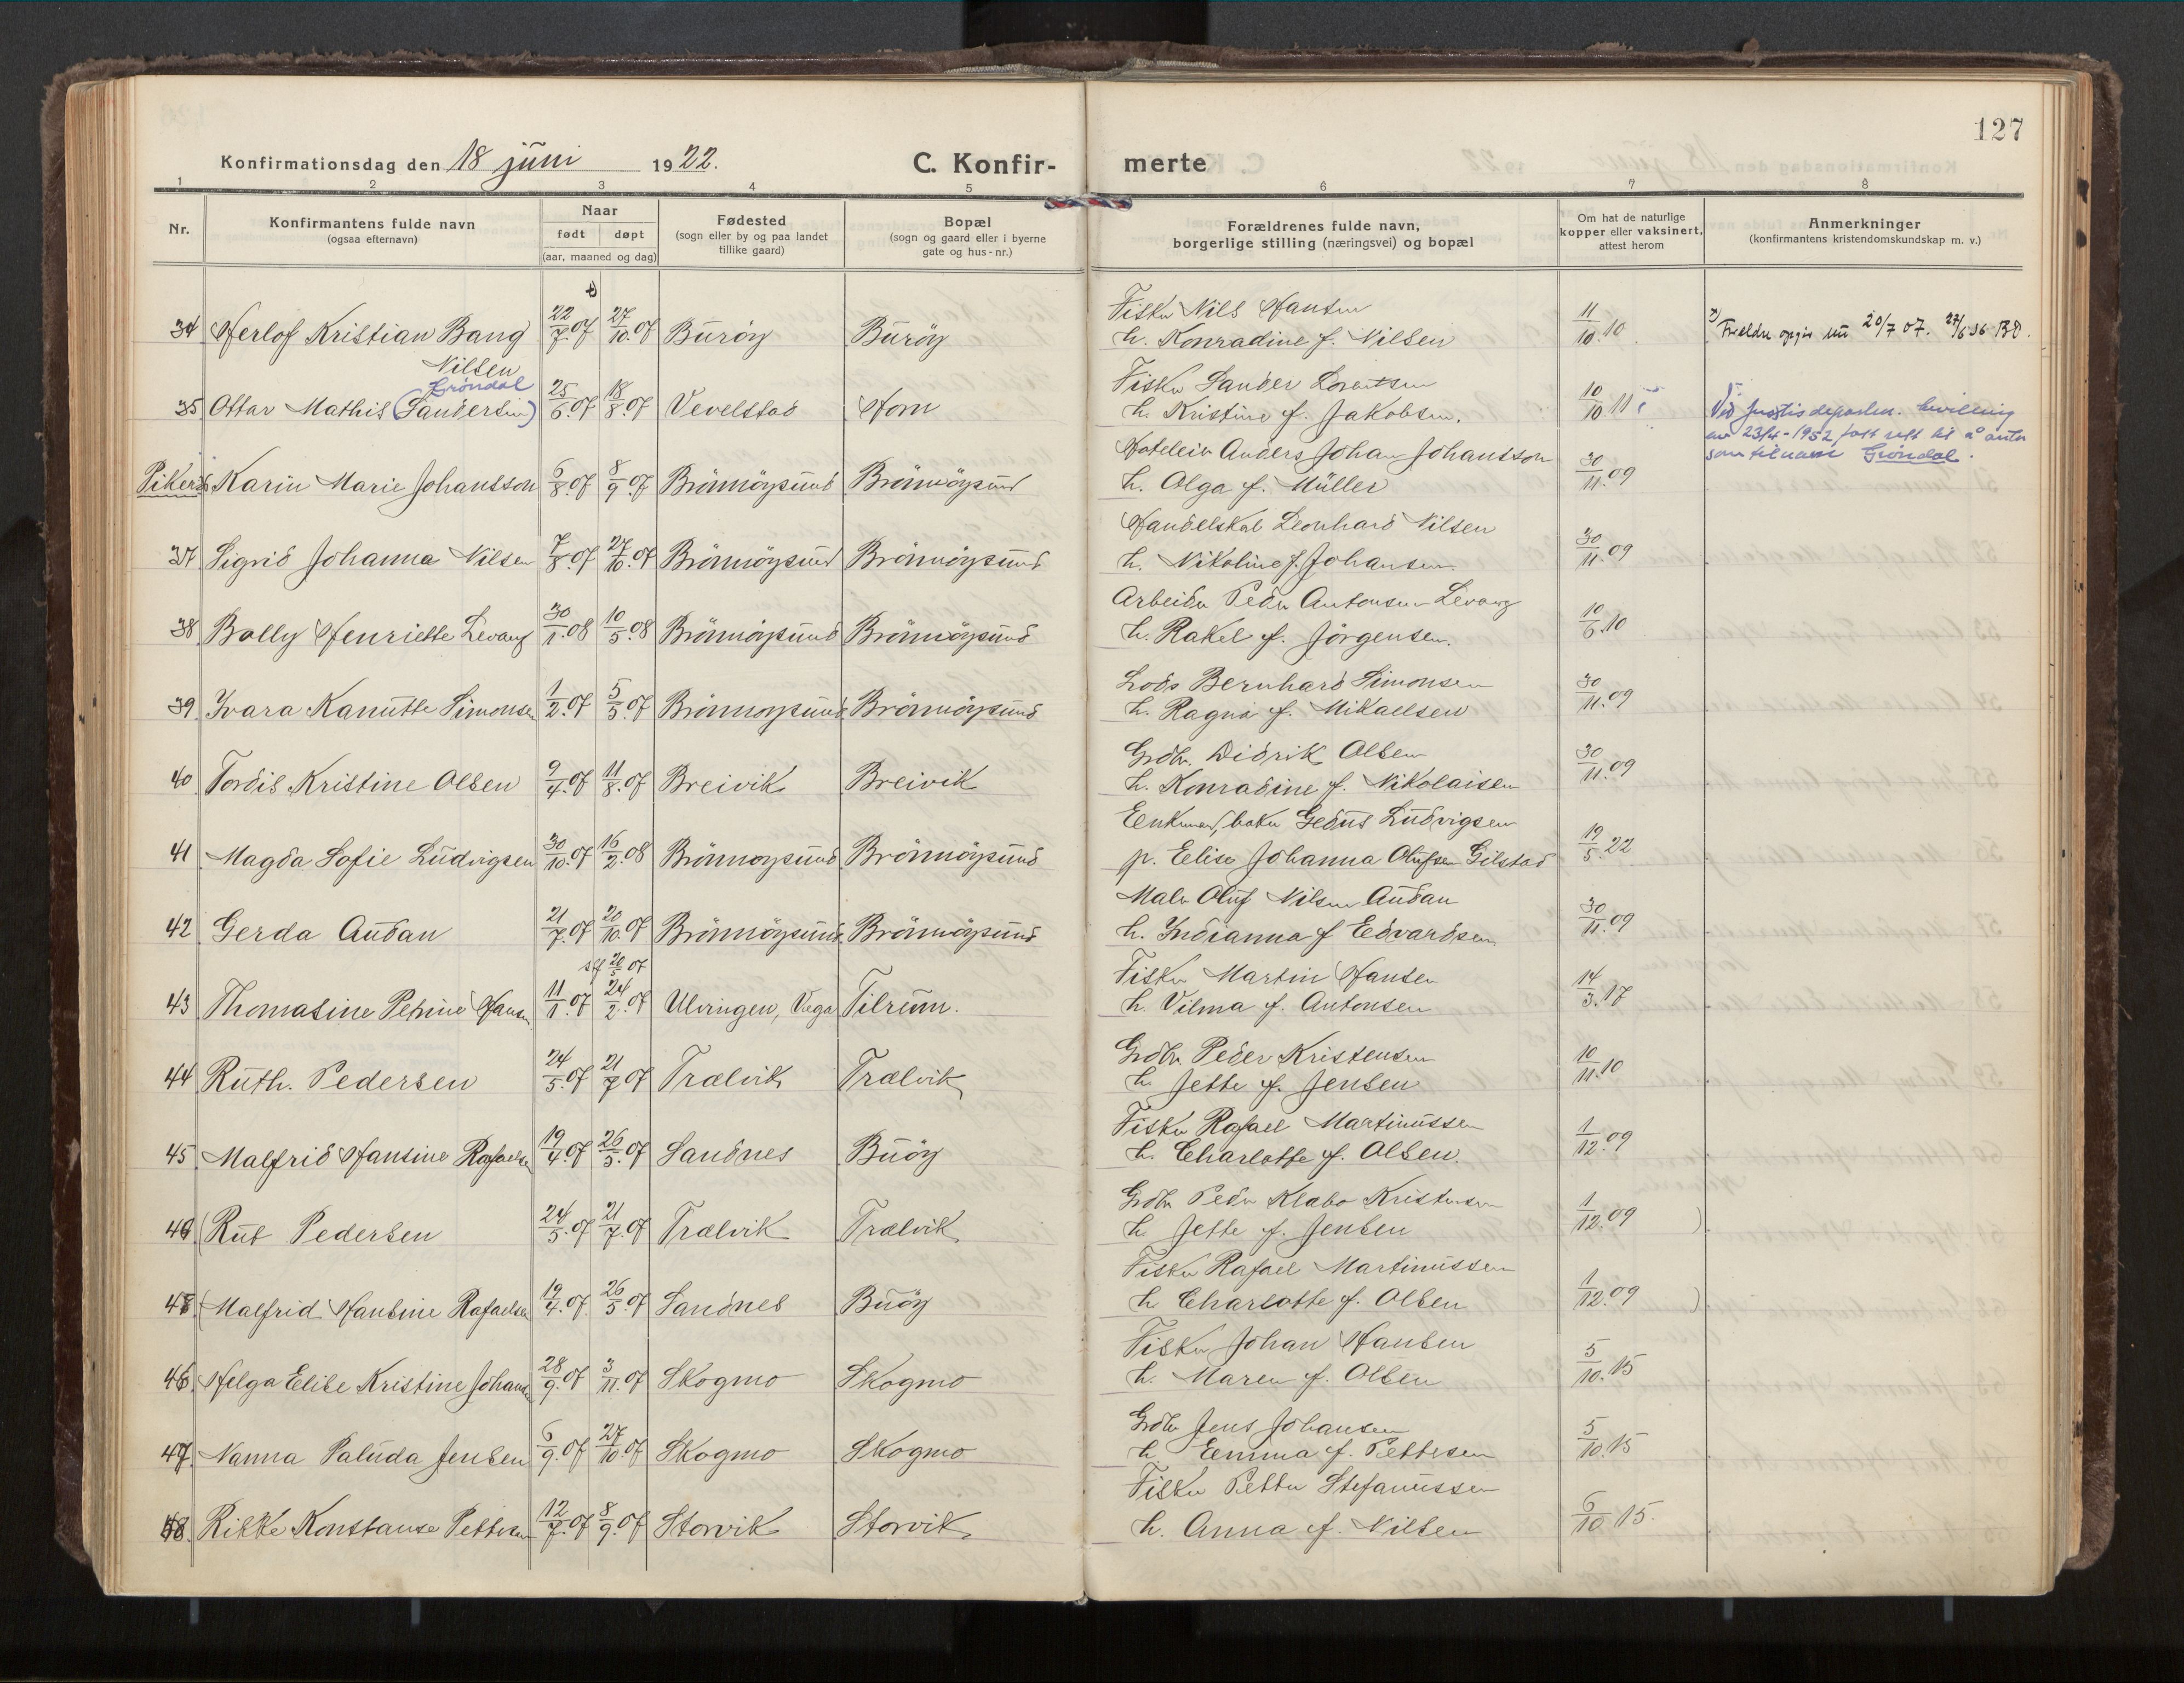 127
Konfirmationsdag den 18 juni 1922. C. Konfir- merte
1 2 3 4 5 6 7 8
Nr. Konfirmantens fulde navn (ogsaa efternavn) Naar født døpt (aar, maaned og dag) Fødested (sogn eller by og paa landet tillike gaard) Bopæl (sogn og gaard eller i byerne gate og hus-nr.) Forældrenes fulde navn, borgerlige stilling (næringsvei) og bopæl Om hat de naturlige kopper eller vaksinert, attest herom Anmerkninger (konfirmantens kristendomskundskap m. v.)
34 Herlof Kristian Bang Nilsen 22/7.07 27/10.07 Buröy Buröy Fisker Nils Hansen h. Konradine f. Nilsen 11/10.10 Foreldre opgir 20/7 07. 27/6 36
35 Ottar Mathis (Sandersen) Gröndal 25/6.07 18/8.07 Vevelstad Horn Fisker Sander Lorentsen h. Kristine f. Jakobsen. 10/10.11 Ved Justisdeparten. bevilling av 23/4-1952 fått rett til å anta som tilnavn Gröndal.
Piker: 36 Karin Marie Johansson 6/8.07 8/9.07 Brönnöysund Brönnöysund Hoteleier Anders Johan Johansson h. Olga f. Müller 30/11.09
37 Sigrid Johanna Nilsen 7/8.07 27/10.07 Brönnöysund Brönnöysund Handelskar Leonhard Nilsen h. Nikoline f. Johansen. 30/11.09
38 Bolly Henriette Levang 30/1.08 10/5.08 Brönnöysund Brönnöysund Arbeider Peder Antonsen Levang h. Rakel f. Jörgensen. 10/6.10
39 Ivara Kanutte Simonsen 1/2.07 5/5.07 Brönnöysund Brönnöysund Lods Bernhard Simonsen h. Ragna f. Mikaelsen 30/11.09
40 Tordis Kristine Olsen 9/4.07 11/8.07 Breivik Breivik Grdbr. Didrik Olsen h. Konradine f. Nikolaisen 30/11.09
41 Magda Sofie Ludvigsen 30/10.07 16/2.08 Brönnöysund Brönnöysund Enkemand, baker Gedus Ludvigsen p. Elise Johanna Olufsen Gilstad 19/5.22
42 Gerda Audan 21/7.07 20/10.07 Brönnöysund Brönnöysund Maler Oluf Nilsen Audan h. Indianna f Edvardsen 30/11.09
43 Thomasine Petrine Hansen 11/1.07 24/2.07 20/5 07 Ulvingen, Vega Tilrum. Fisker Martin Hansen h. Vilma f. Antonsen 14/3.17
44 Ruth. Pedersen 24/5.07 21/7 07 Trælvik Trælvik Grdbr Peder Kristensen h. Jette f. Jensen 10/11.10
45 Malfrid Hansine Rafaelsen 19/4.07 26/5.07 Sandnes Buöy Fisker Rafael Martinussen h. Charlotte f. Olsen. 1/12.09
46 (Rut Pedersen 24/5.07 21/7.07 Trælvik Trælvik Grdbr Peder Klabo Kristensen h. Jette f. Jensen 1/12.09 )
47 (Malfrid Hansine Rafaelsen 19/4.07. 26/5.07 Sandnes Buöy Fisker Rafael Martinussen h Charlotte f. Olsen 1/12.09 )
46 Helga Elise Kristine Johansen 28/9.07 3/11.07 Skogmo Skogmo Fisker Johan Hansen h. Maren f. Olsen 5/10.15
47. Nanna Paluda Jensen 6/9.07 27/10.07 Skogmo Skogmo Grdbr Jens Johansen h. Emma f. Pettersen 5/10.15
48. Rikke Konstanse Pettersen 12/7.07 8/9.07 Storvik Storvik Fisker Petter Stefanussen h. Anna f. Nilsen 6/10 15.